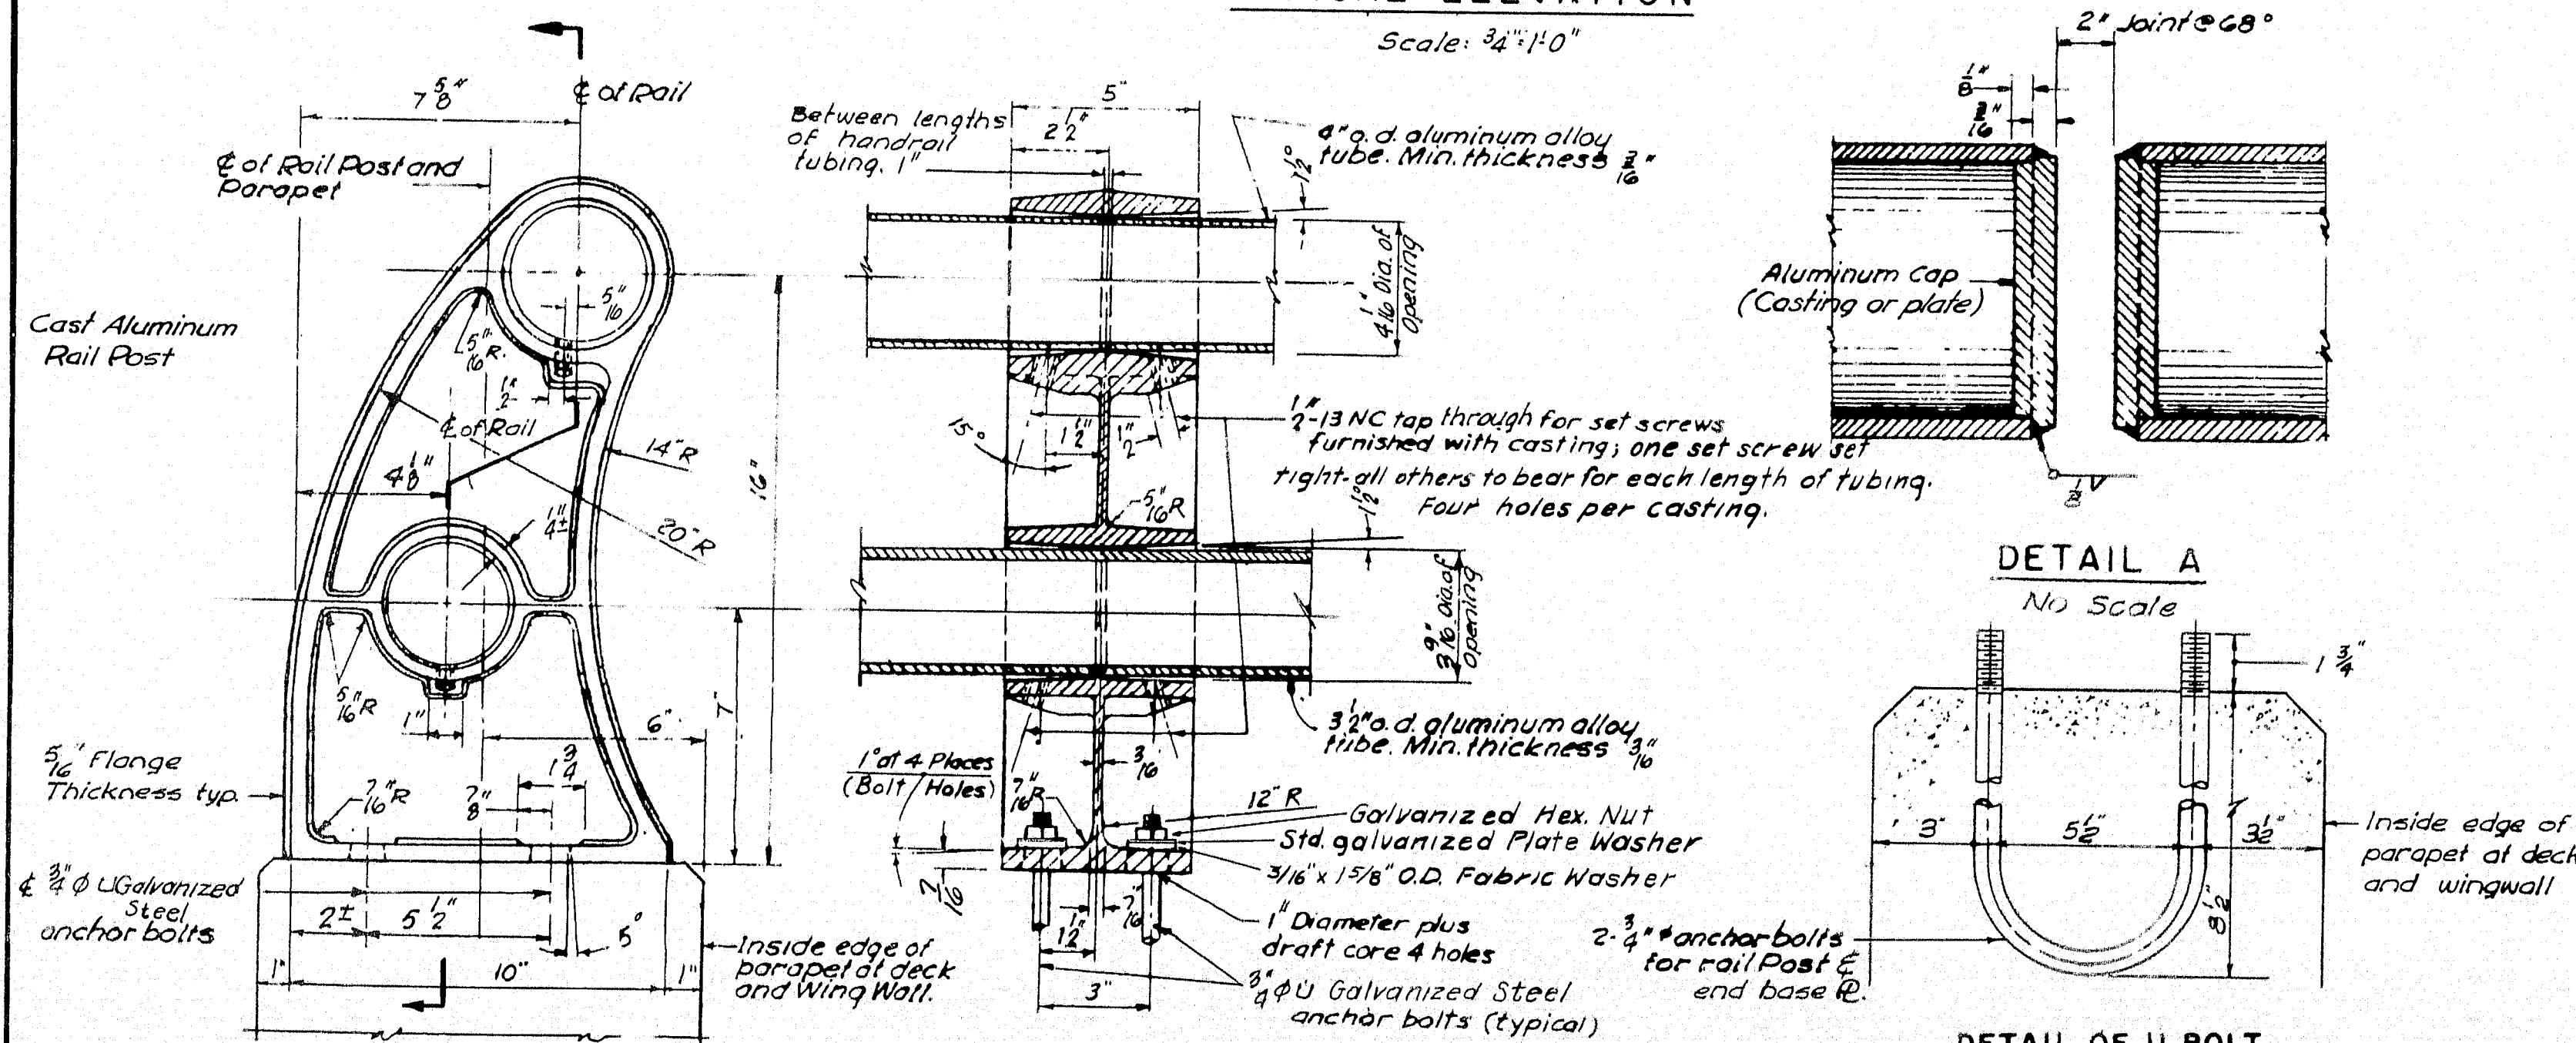 Scale: 3/4"=1'-0"
2" Joint @ 68°
7 5/8"
℄ of Rail
℄ of Rail Post and
Parapet
Cast Aluminum
Rail Post
5/16"
5/16" R.
1/2"
℄ of Rail
4 1/8"
14" R
20" R
1/4"±
16"
7"
5/16" R
1"
6"
5/16" Flange
Thickness typ.
7/16" R
7/8"
1 3/4"
℄ 3/4" Φ U Galvanized
Steel
anchor bolts
2"±
5 1/2"
5°
1"
10"
1"
Inside edge of
parapet at deck
and Wing Wall.
5"
2 1/2"
Between lengths
of handrail
tubing. 1"
4" o.d. aluminum alloy
tube. Min. thickness 3/16"
1 1/2°
4 1/16" Dia. of
Opening
15°
1 1/2"
1/2"
1/2"-13 NC tap through for set screws
furnished with casting; one set screw set
tight-all others to bear for each length of tubing.
Four holes per casting.
5/16" R
1 1/2°
3 9/16" Dia. of
Opening
3 1/2" o.d. aluminum alloy
tube. Min. thickness 3/16"
1° at 4 Places
(Bolt Holes)
7/16" R
3/16
12" R
Galvanized Hex. Nut
Std. galvanized Plate Washer
3/16" x 1 5/8" O.D. Fabric Washer
7/16
1 1/2"
7/16"
1" Diameter plus
draft core 4 holes
3"
3/4" Φ U Galvanized Steel
anchor bolts (typical)
1/8"
3/16"
Aluminum Cap
(Casting or plate)
1/8
DETAIL A
No Scale
1 3/4"
3"
5 1/2"
3 1/2"
8 1/2"
Inside edge of
parapet at deck
and wingwall
2-3/4" Φ anchor bolts
for rail Post &
end base ℄.
DETAIL OF U BOLT